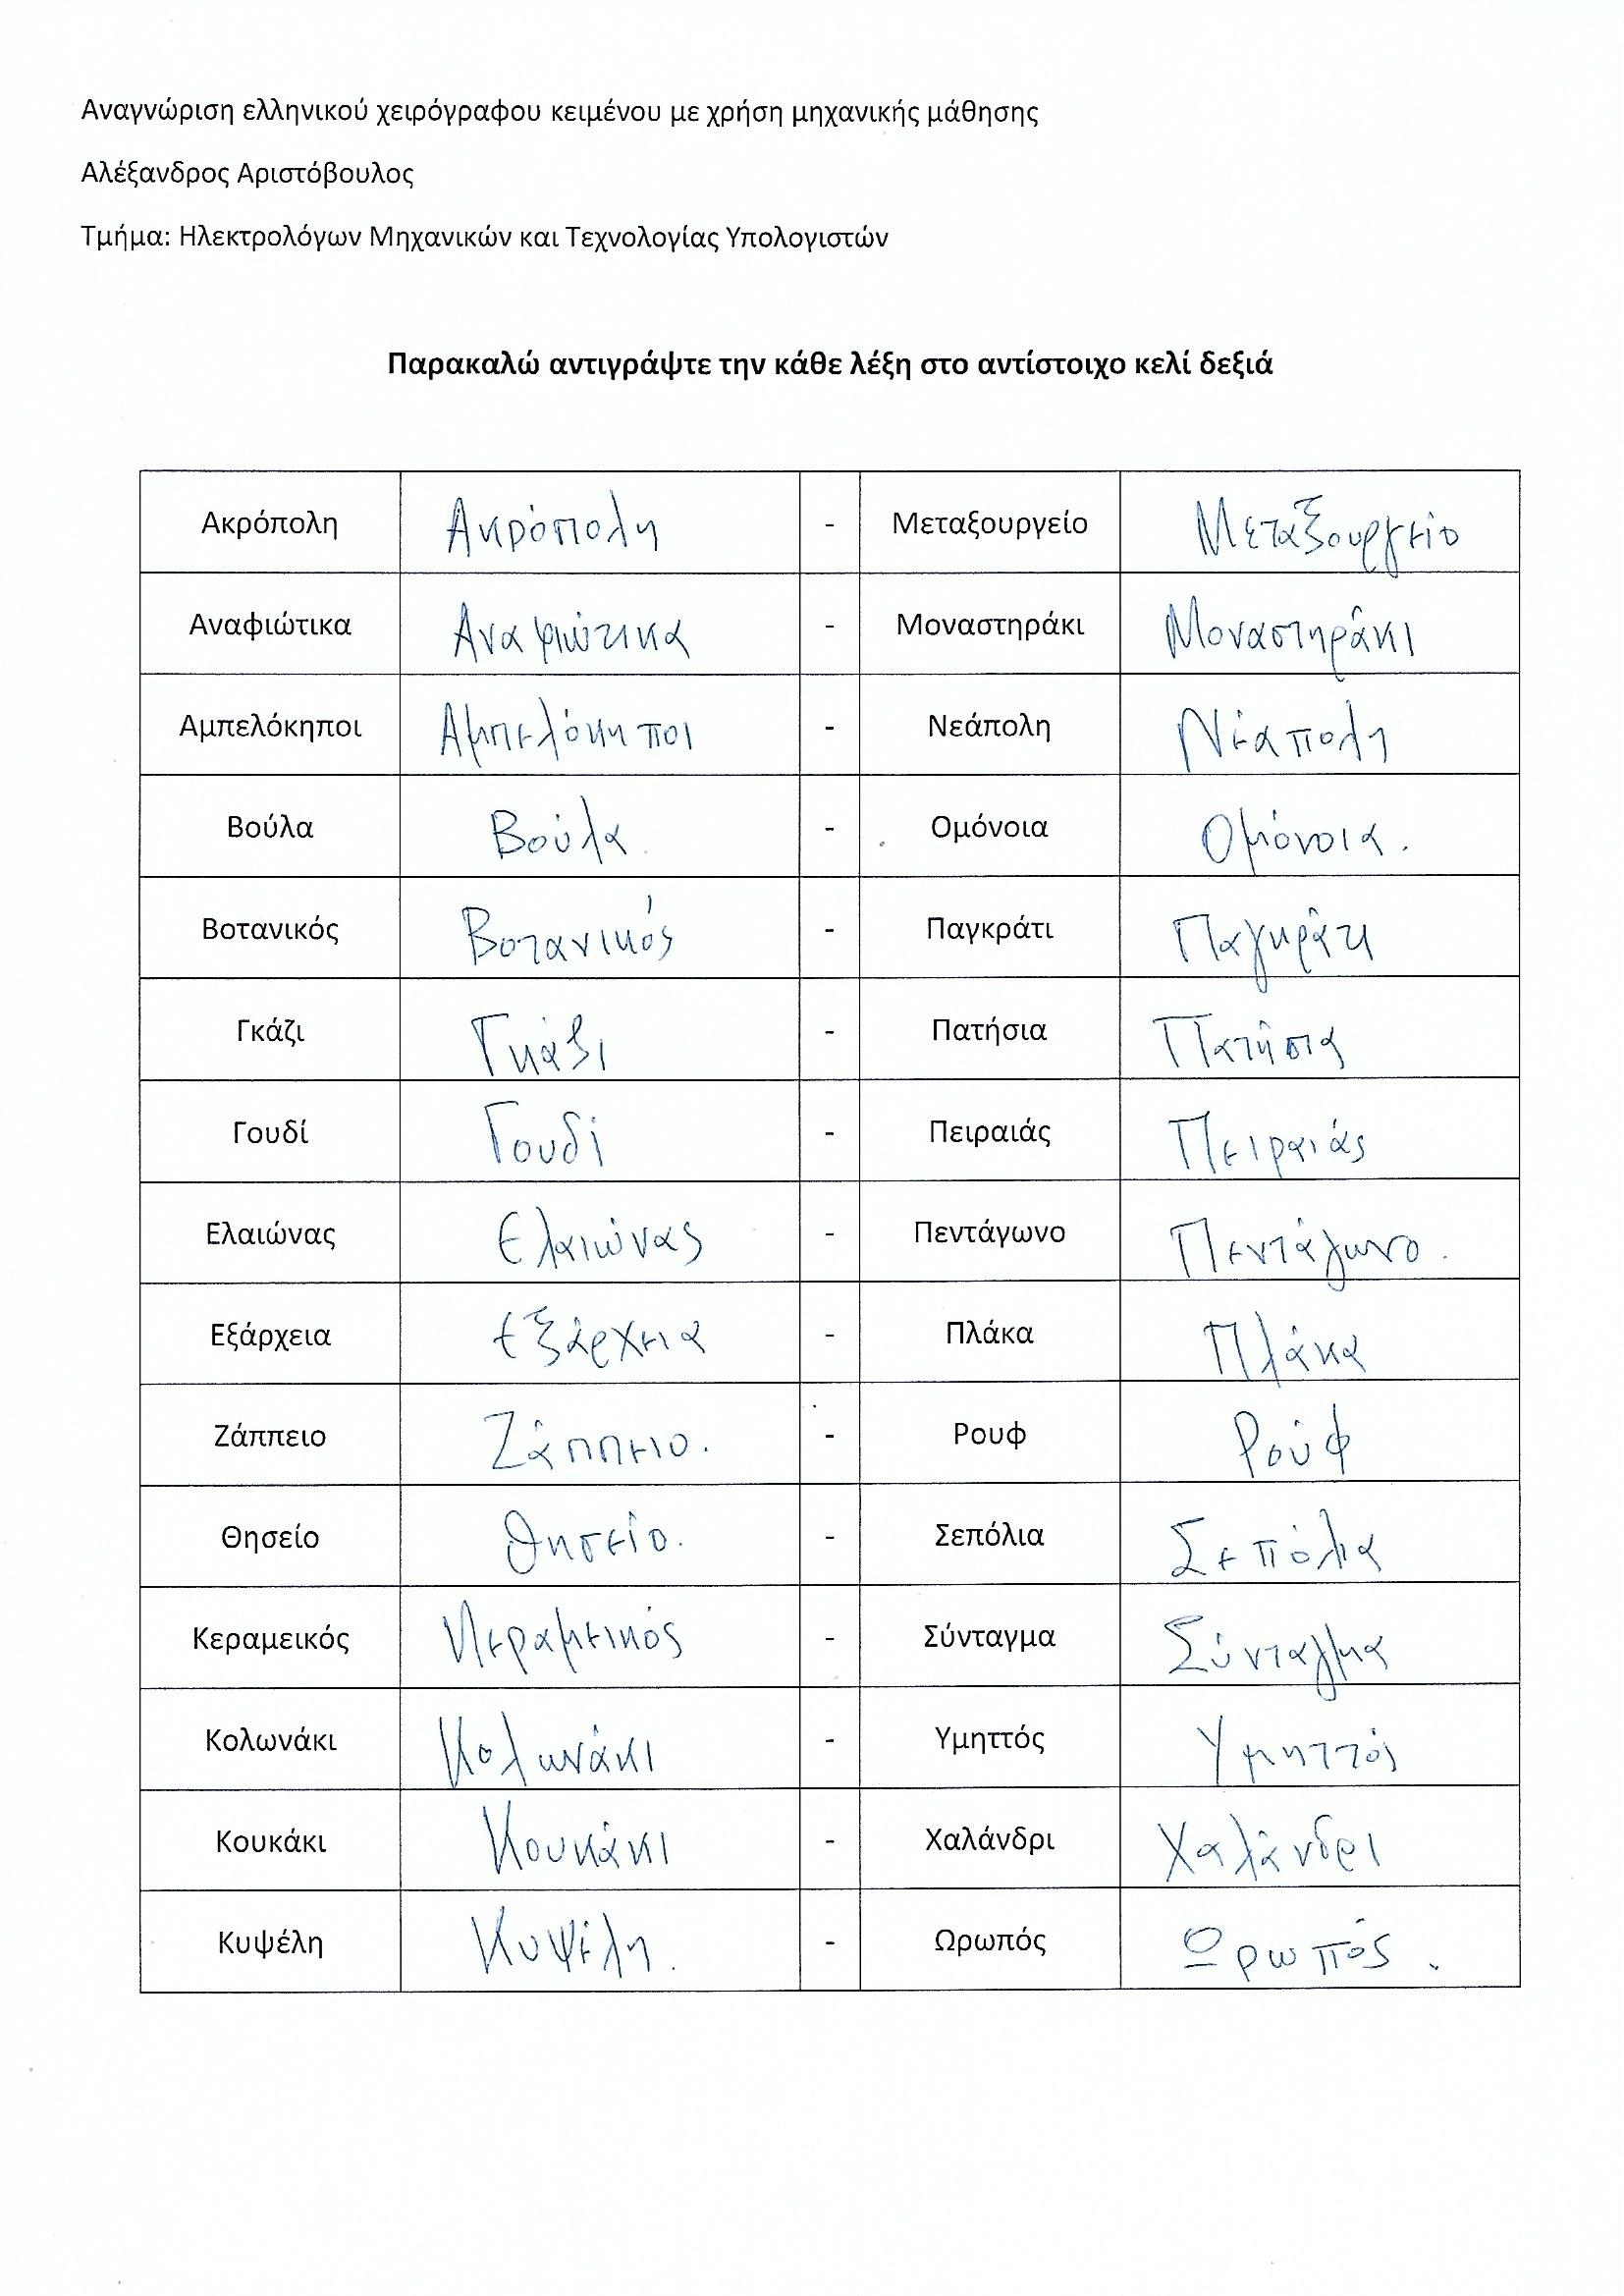 Αναγνώριση ελληνικού χειρόγραφου κειμένου με χρήση μηχανικής μάθησης
Αλέξανδρος Αριστόβουλος
Τμήμα: Ηλεκτρολόγων Μηχανικών και Τεχνολογίας Υπολογιστών
Παρακαλώ αντιγράψτε την κάθε λέξη στο αντίστοιχο κελί δεξιά
Ακρόπολη Ακρόπολη - Μεταξουργείο Μεταξουργείο
Αναφιώτικα Αναφιώτικα - Μοναστηράκι Μοναστηράκι
Αμπελόκηποι Αμπελόκηποι - Νεάπολη Νέαπολη
Βούλα Βούλα. - Ομόνοια Ομόνοια.
Βοτανικός Βοτανικός - Παγκράτι Παγκράτι
Γκάζι Γκάζι - Πατήσια Πατήσια
Γουδί Γουδί - Πειραιάς Πειραιάς
Ελαιώνας Ελαιώνας - Πεντάγωνο Πεντάγωνο.
Εξάρχεια Εξάρχεια - Πλάκα Πλάκα
Ζάππειο Ζάππειο. - Ρουφ Ρούφ
Θησείο Θησείο. - Σεπόλια Σεπόλια
Κεραμεικός Κεραμεικός - Σύνταγμα Σύνταγμα
Κολωνάκι Κολωνάκι - Υμηττός Υμηττός
Κουκάκι Κουκάκι - Χαλάνδρι Χαλάνδρι
Κυψέλη Κυψέλη. - Ωρωπός Ωρωπός.